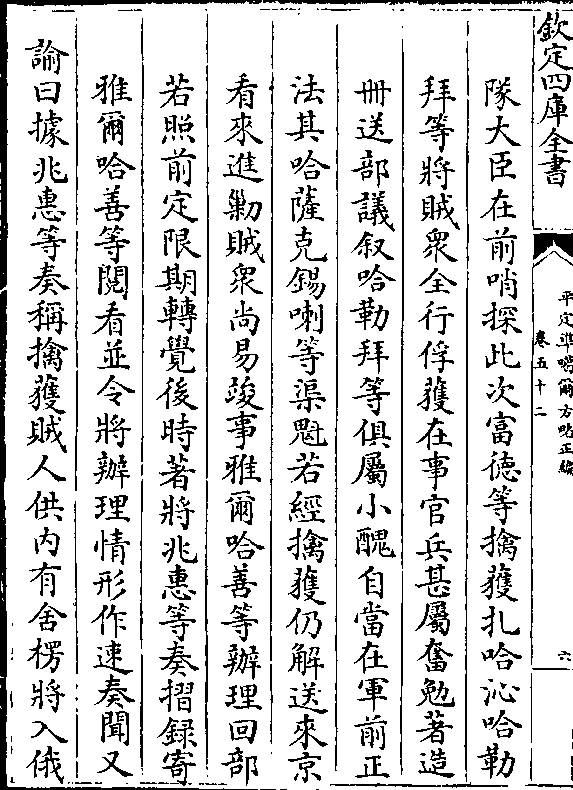 欽定四庫全書
平定準噶爾方略正編
卷五十二
六
隊大臣在前哨探此次富德等擒獲扎哈沁哈勒
拜等將賊衆全行俘獲在事官兵甚屬奮勉著造
冊送部議叙哈勒拜等俱屬小醜自當在軍前正
法其哈薩克錫喇等渠魁若經擒獲仍解送來京
看來進勦賊衆尚易竣事雅爾哈善等辦理回部
若照前定限期轉覺後時著將兆惠等奏摺録寄
雅爾哈善等閱看並令將辦理情形作速奏聞又
諭曰據兆惠等奏稱擒獲賊人供內有舍楞將入俄